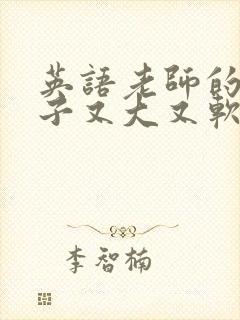 英語老師的
子又大又軟
李智楠